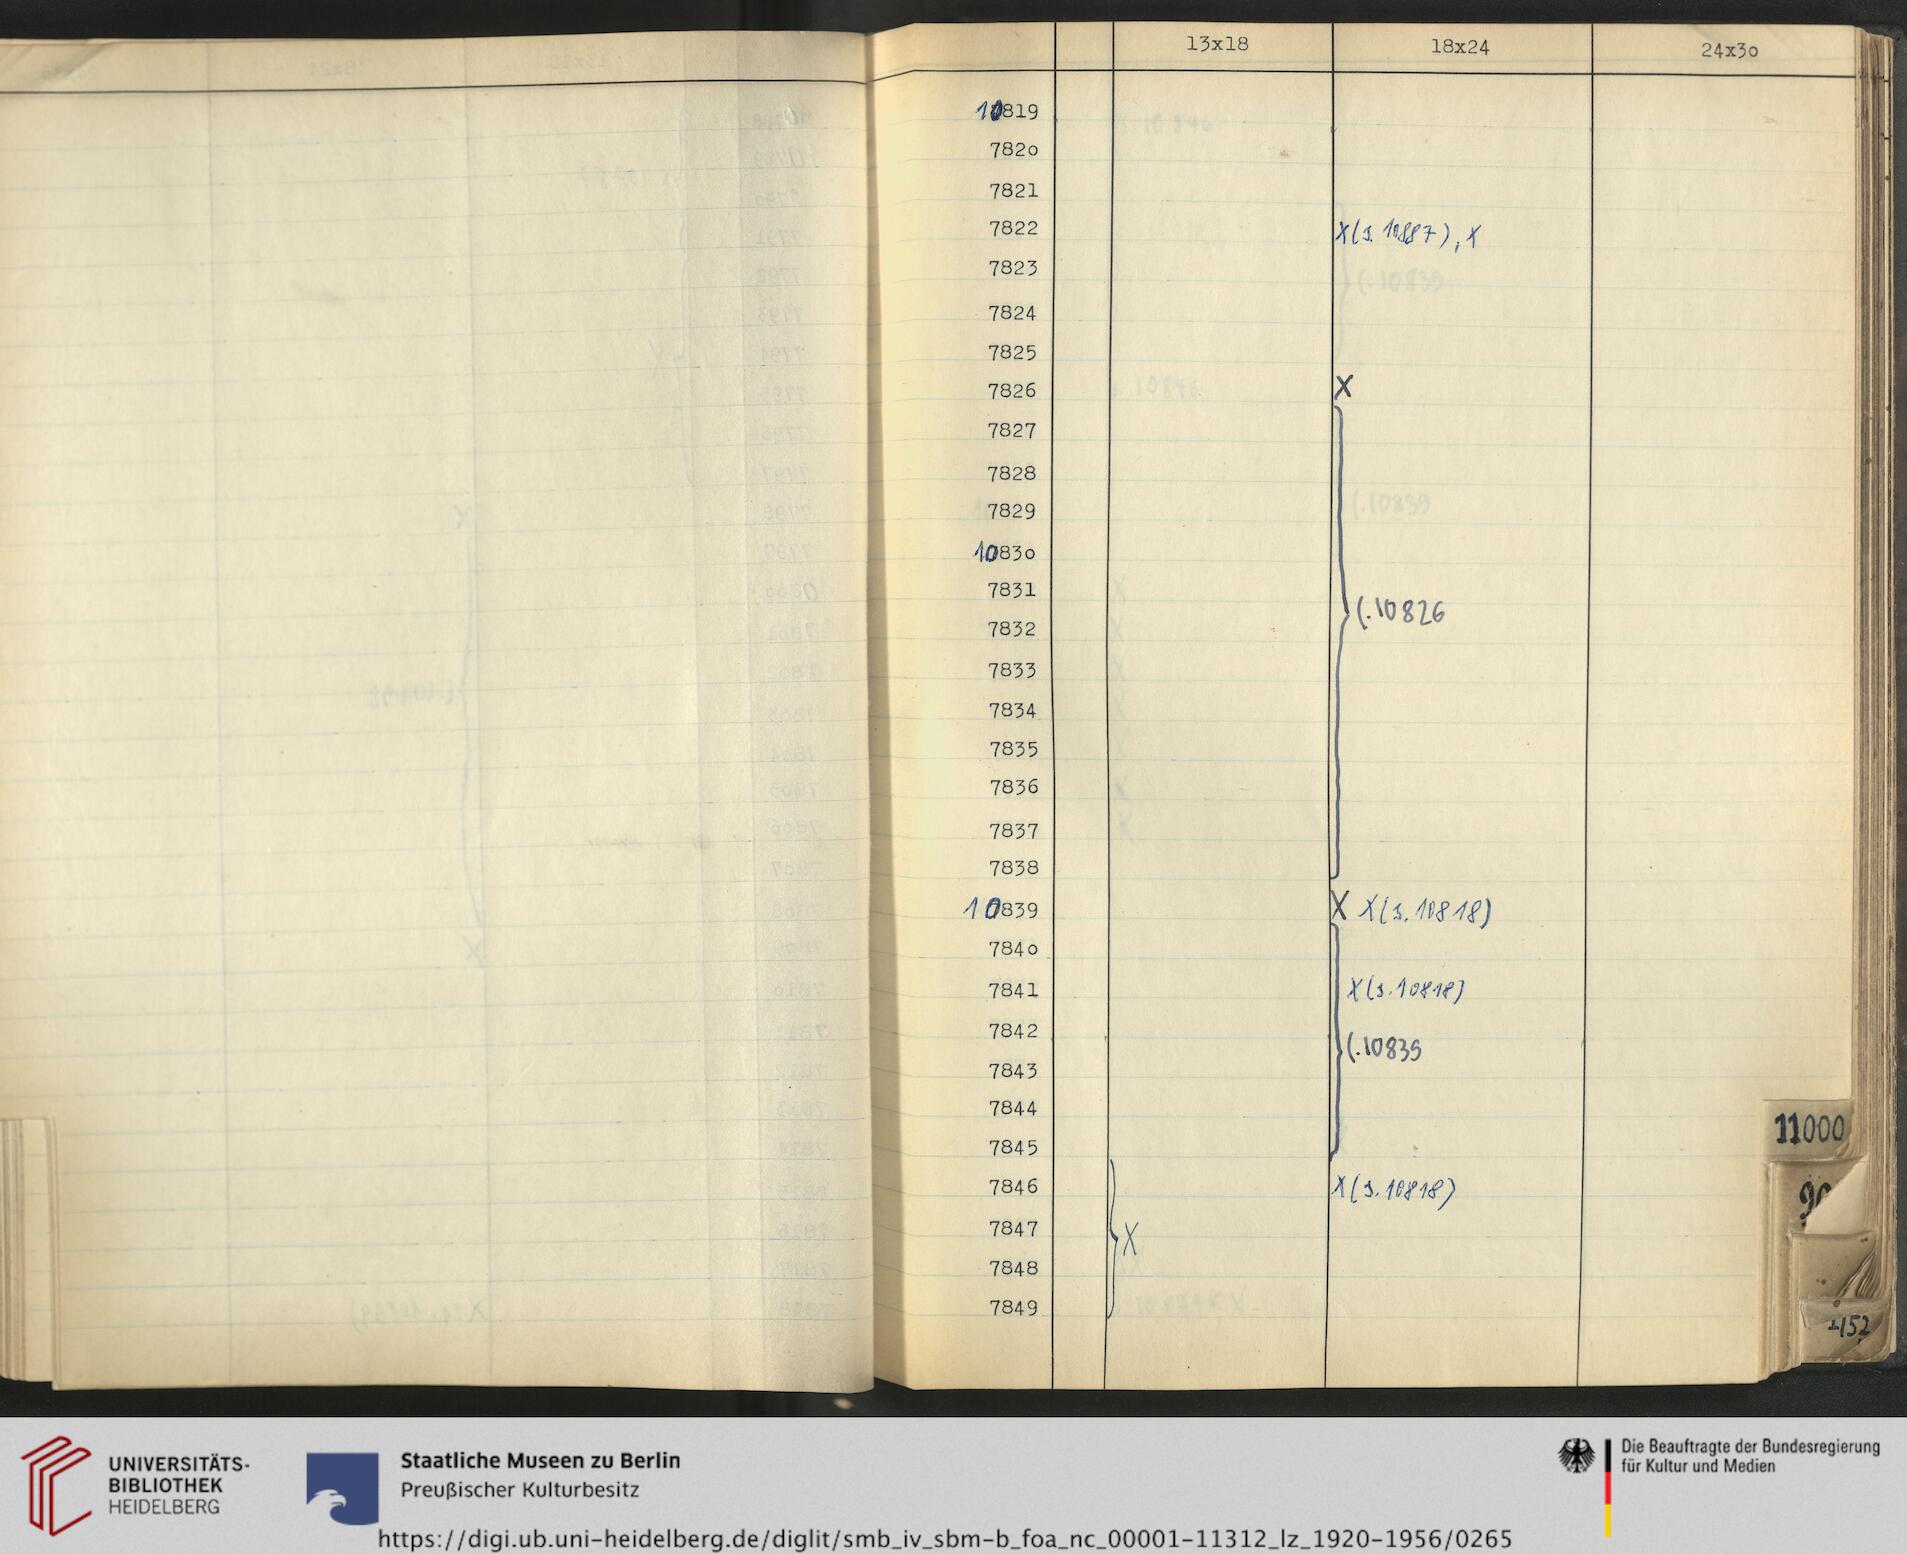 13x18 18x24 24x3o
10819
782o
7821
7822 X(s. 10887), X
7823
7824
7825
7826 X
7827
7828
7829
1083o
7831
(.10826
7832
7833
7834
7835
7836
7837
7838
10839 X X(s. 10818)
784o
7841 X(s. 10818)
7842
(.10839
7843
7844
11000
7845
7846 X(s. 10818)
90
7847 X
7848
7849
152
UNIVERSITÄTS-
BIBLIOTHEK
HEIDELBERG
Staatliche Museen zu Berlin
Preußischer Kulturbesitz
Die Beauftragte der Bundesregierung
für Kultur und Medien
https://digi.ub.uni-heidelberg.de/diglit/smb_iv_sbm-b_foa_nc_00001-11312_lz_1920-1956/0265